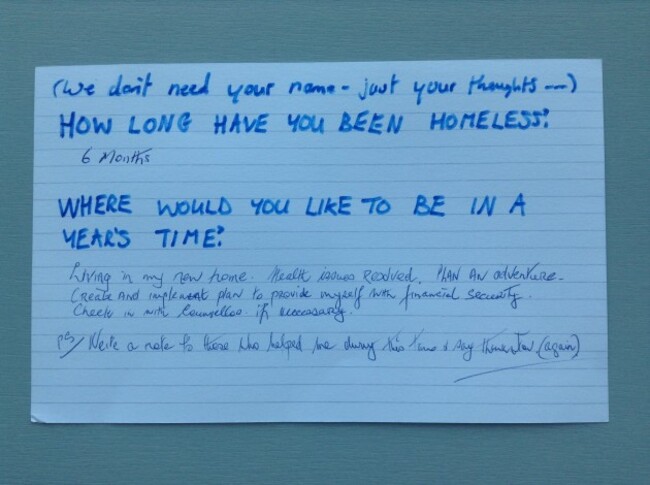 (We don't need your name - just your thoughts ---)
HOW LONG HAVE YOU BEEN HOMELESS?
6 Months
WHERE WOULD YOU LIKE TO BE IN A
YEAR'S TIME?
Living in my new home. Health issues resolved. PLAN AN adventure.
Create AND implement plan to provide myself with financial security.
Check in with Counsellor if necessary.
PS/ Write a note to those who helped me during this time & say (again)